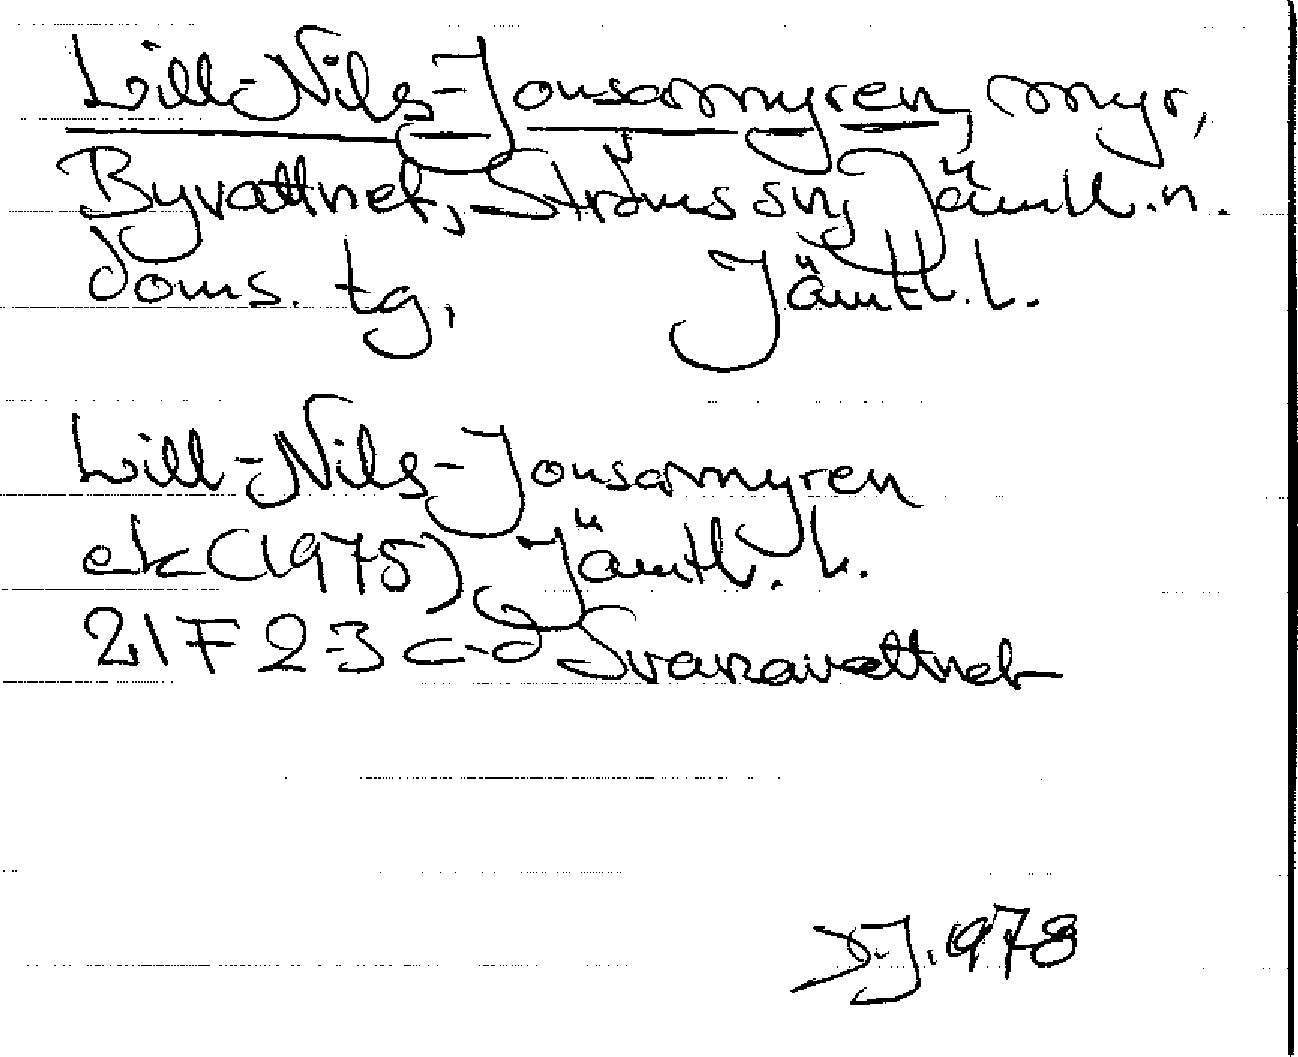 Lill-Nils-Jonsamyren, myr,
Byvattnet, Ströms sn, Jämtl. n.
doms. tg, Jämtl. l.
Lill-Nils-Jonsamyren
ek (1975), Jämtl. l.
21 F 2-3 c-d Svanavattnet
1978